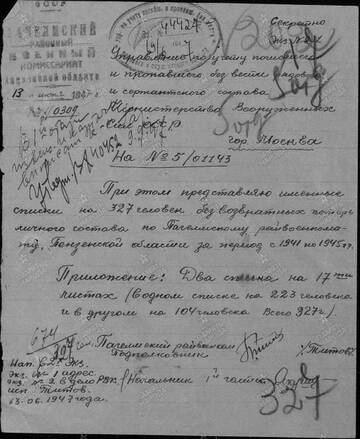 СССР
ПАЧЕЛМСКИЙ
РАЙОННЫЙ
ВОЕННЫЙ
КОМИССАРИАТ
Пензенской области
13 июня 1947 г.
№ 0309
44427
19/6
Секретно
Экз. №
Управление по учету погибшего
и пропавшего без вести рядового
и сержантского состава
Министерства Вооруженных
Сил СССР
гор. Москва
На № 5/01143
При этом представляю именные
списки на 327 человек безвозвратных потерь
личного состава по Пачелмскому райвоенкома-
ту, Пензенской области за период с 1941 по 1945 гг.
Приложение: Два списка на 17ти
листах (в одном списке на 223 человека
и в другом на 104 человека Всего 327 ч.)
674
327
Пачелмский райвоенком
Подполковник
/Титов/
Начальник 1й части
327
Нап. 2 экз.
экз. № 1 адрес.
экз. № 2 в дело РВК
исп. Титов.
13.06.1947 года.